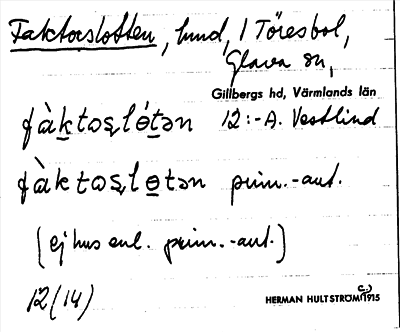 Faktorslotten, hmd, 1 Töresbol,
Glava sn,
Gillbergs hd, Värmlands län
fàktoʂlótən 12:- A. Vestlind
fàktoʂlɵtən prim.-aut.
(ej hus enl. prim.-aut.)
12(14)
HERMAN HULTSTRÖM(C.) 1915